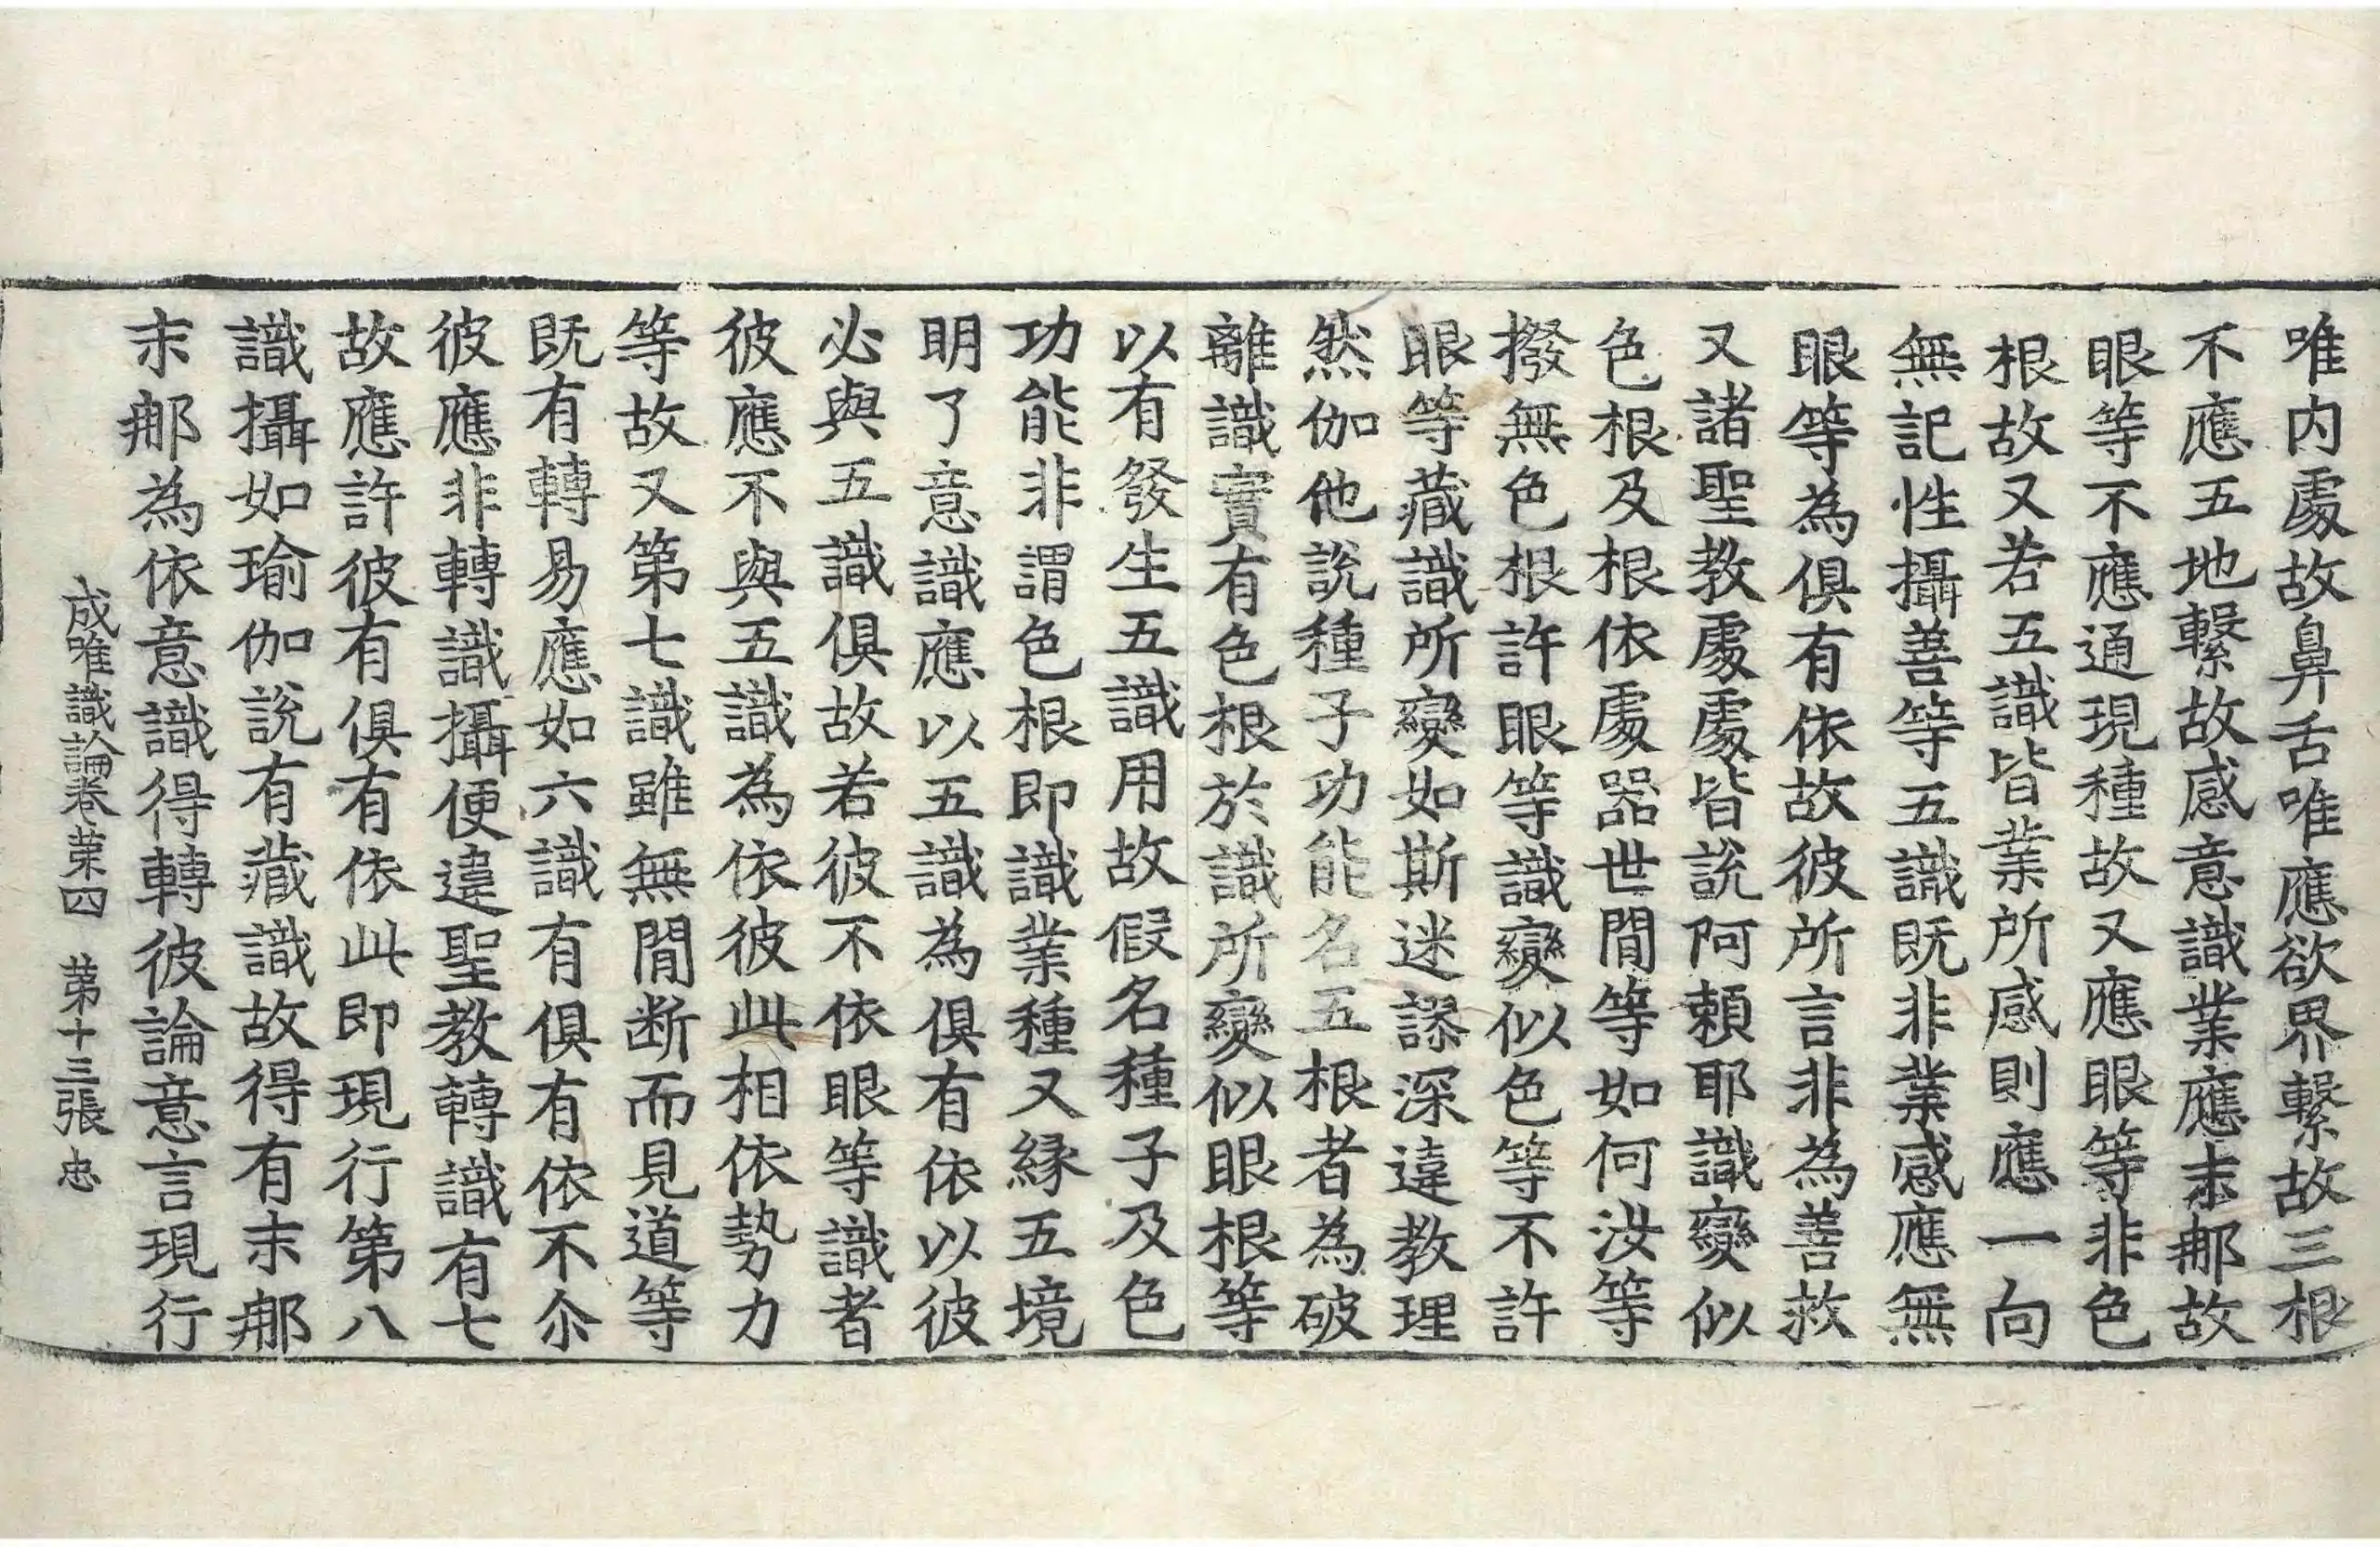 唯内處故鼻舌唯應欲界繫故三根
不應五地繫故感意識業應末那故
眼等不應通現種故又應眼等非色
根故又若五識皆業所感則應一向
無記性攝善等五識既非業感應無
眼等為俱有依故彼所言非為善救
又諸聖教處處皆說阿賴耶識變似
色根及根依處器世間等如何汝等
撥無色根許眼等識變似色等不許
眼等藏識所變如斯迷謬深違教理
然伽他說種子功能名五根者為破
離識實有色根於識所變似眼根等
以有發生五識用故假名種子及色
功能非謂色根即識業種又緣五境
明了意識應以五識為俱有依以彼
必與五識俱故若彼不依眼等識者
彼應不與五識為依彼此相依勢力
等故又第七識雖無間断而見道等
既有轉易應如六識有俱有依不尒
彼應非轉識攝便違聖教轉識有七
故應許彼有俱有依此即現行第八
識攝如瑜伽說有藏識故得有末那
末那為依意識得轉彼論意言現行
成唯識論卷苐四　苐十三張　忠